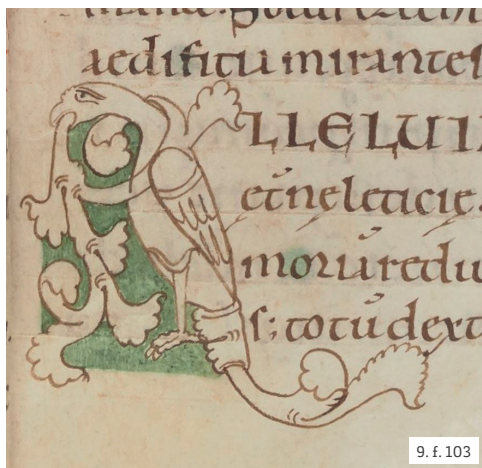 aedificiū mirantes
ALLELUI
et̄neleticię.
moriāredu
s; totū dext
9. f. 103